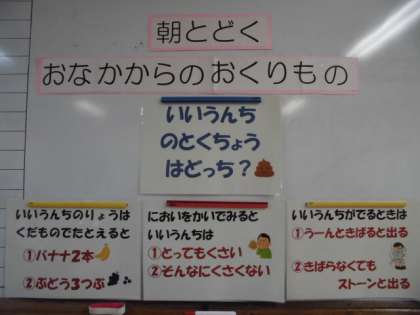 朝とどく
おなかからのおくりもの
いいうんち
のとくちょう
はどっち?
いいうんちのりょうは
くだものでたとえると
①バナナ2本
②ぶどう3つぶ
においをかいでみると
いいうんちは
①とってもくさい
②そんなにくさくない
いいうんちがでるときは
①うーんときばると出る
②きばらなくても
ストーンと出る